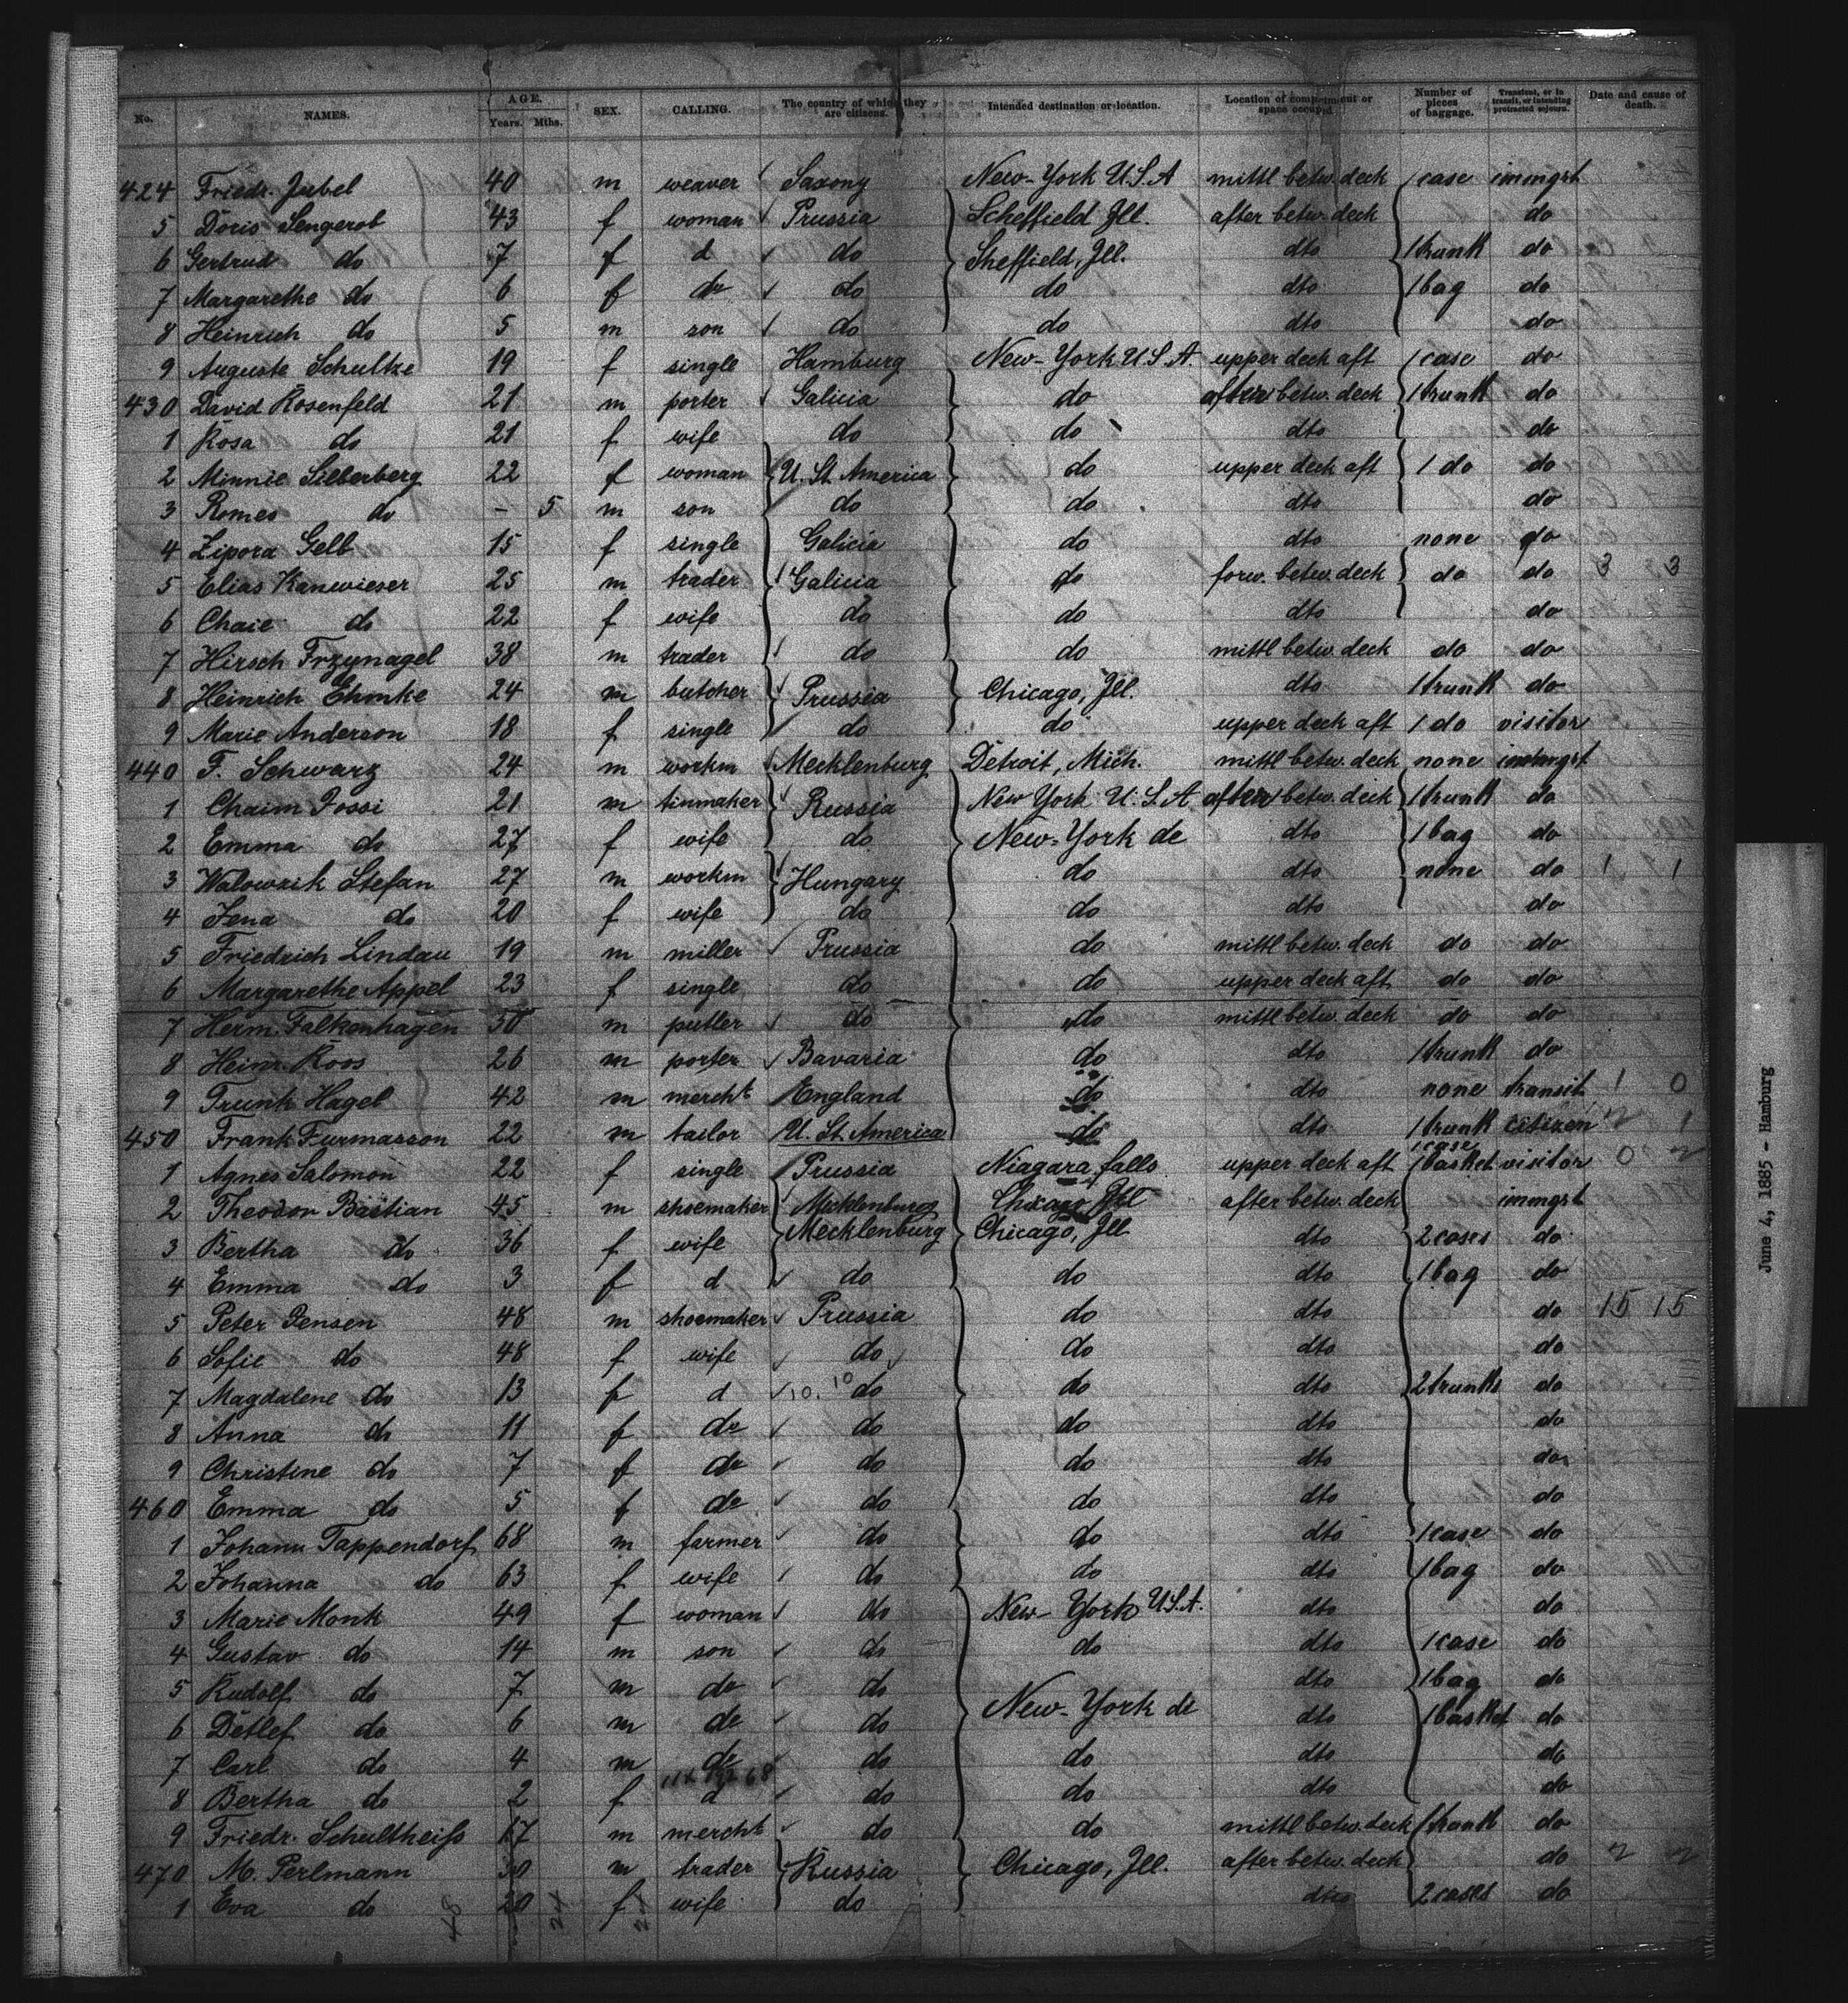 No. NAMES. AGE. Years. Mths. SEX. CALLING. The country of which they are citizens. Intended destination or location. Location of compartment or space occupied Number of pieces of baggage. Transient, or in transit, or intending protracted sojourn. Date and cause of death.
424 Friedr. Jubel 40 m weaver Saxony New-York U.S.A mittl betw. deck 1 case immgrt
5 Doris Sengerob 43 f woman Prussia Scheffield Ill. after betw. deck do
6 Gertrud do 7 f d do Sheffield, Ill. dto 1 trunk do
7 Margarethe do 6 f do do do dto 1 bag do
8 Heinrich do 5 m son do do dto do
9 Auguste Schultze 19 f single Hamburg New-York U.S.A. upper deck aft 1 case do
430 David Rosenfeld 21 m porter Galicia do after betw. deck 1 trunk do
1 Rosa do 21 f wife do do dto do
2 Minnie Silberberg 22 f woman U. St. America do upper deck aft 1 do do
3 Romeo do – 5 m son do do dto do
4 Zipora Gelb 15 f single Galicia do dto none do
5 Elias Kanwieser 25 m trader Galicia do forw. betw. deck do do 3 3
6 Chaie do 22 f wife do do dto do
7 Hirsch Frzynagel 38 m trader do do mittl betw. deck do do
8 Heinrich Ehmke 24 m butcher Prussia Chicago, Ill. dto 1 trunk do
9 Marie Anderson 18 f single do do upper deck aft 1 do visitor
440 F. Schwarz 24 m workm Mecklenburg Detroit, Mich. mittl betw. deck none immgrt
1 Chaim Jossi 21 m tinmaker Russia New York U.S.A after betw. deck 1 trunk do
2 Emma do 27 f wife do New-York do dto 1 bag do
3 Walowzik Stefan 27 m workm Hungary do dto none do 1 1
4 Jena do 20 f wife do do dto do
5 Friedrich Lindau 19 m miller Prussia do mittl betw. deck do do
6 Margarethe Appel 23 f single do do upper deck aft do do
7 Herm. Falkenhagen 30 m putler do do mittl betw. deck do do
8 Heinr. Roos 26 m porter Bavaria do dto 1 trunk do
9 Trunk Hagel 42 m mercht England do dto none transit 1 0
450 Frank Furmasson 22 m tailor U. St. America do dto 1 trunk citizen 2 1
1 Agnes Salomon 22 f single Prussia Niagara falls upper deck aft 1 case 1 basket visitor 0 2
2 Theodor Bastian 45 m shoemaker Mecklenburg Chicago Ill after betw. deck immgrt
3 Bertha do 36 f wife Mecklenburg Chicago, Ill dto 2 cases do
4 Emma do 3 f d do do dto 1 bag do
5 Peter Jensen 48 m shoemaker Prussia do dto do 15 15
6 Sofie do 48 f wife do do dto do
7 Magdalene do 13 f d 10. 10 do do dto 2 trunks do
8 Anna do 11 f do do do dto do
9 Christine do 7 f do do do dto do
460 Emma do 5 f do do do dto do
1 Johann Tappendorf 68 m farmer do do dto 1 case do
2 Johanna do 63 f wife do do dto 1 bag do
3 Marie Monk 49 f woman do New-York U.S.A. dto do
4 Gustav do 14 m son do do dto 1 case do
5 Rudolf do 7 m do do dto 1 bag do
6 Detlef do 6 m do do New-York do dto 1 basket do
7 Carl do 4 m do do do dto do
8 Bertha do 2 f d do do dto do
9 Friedr. Schultheiß 17 m mercht do do mittl betw. deck 1 trunk do
470 M. Perlmann 30 m trader Russia Chicago, Ill. after betw. deck do 2 2
1 Eva do 20 f wife do dto 2 cases do
48 24 24
June 4, 1885 - Hamburg